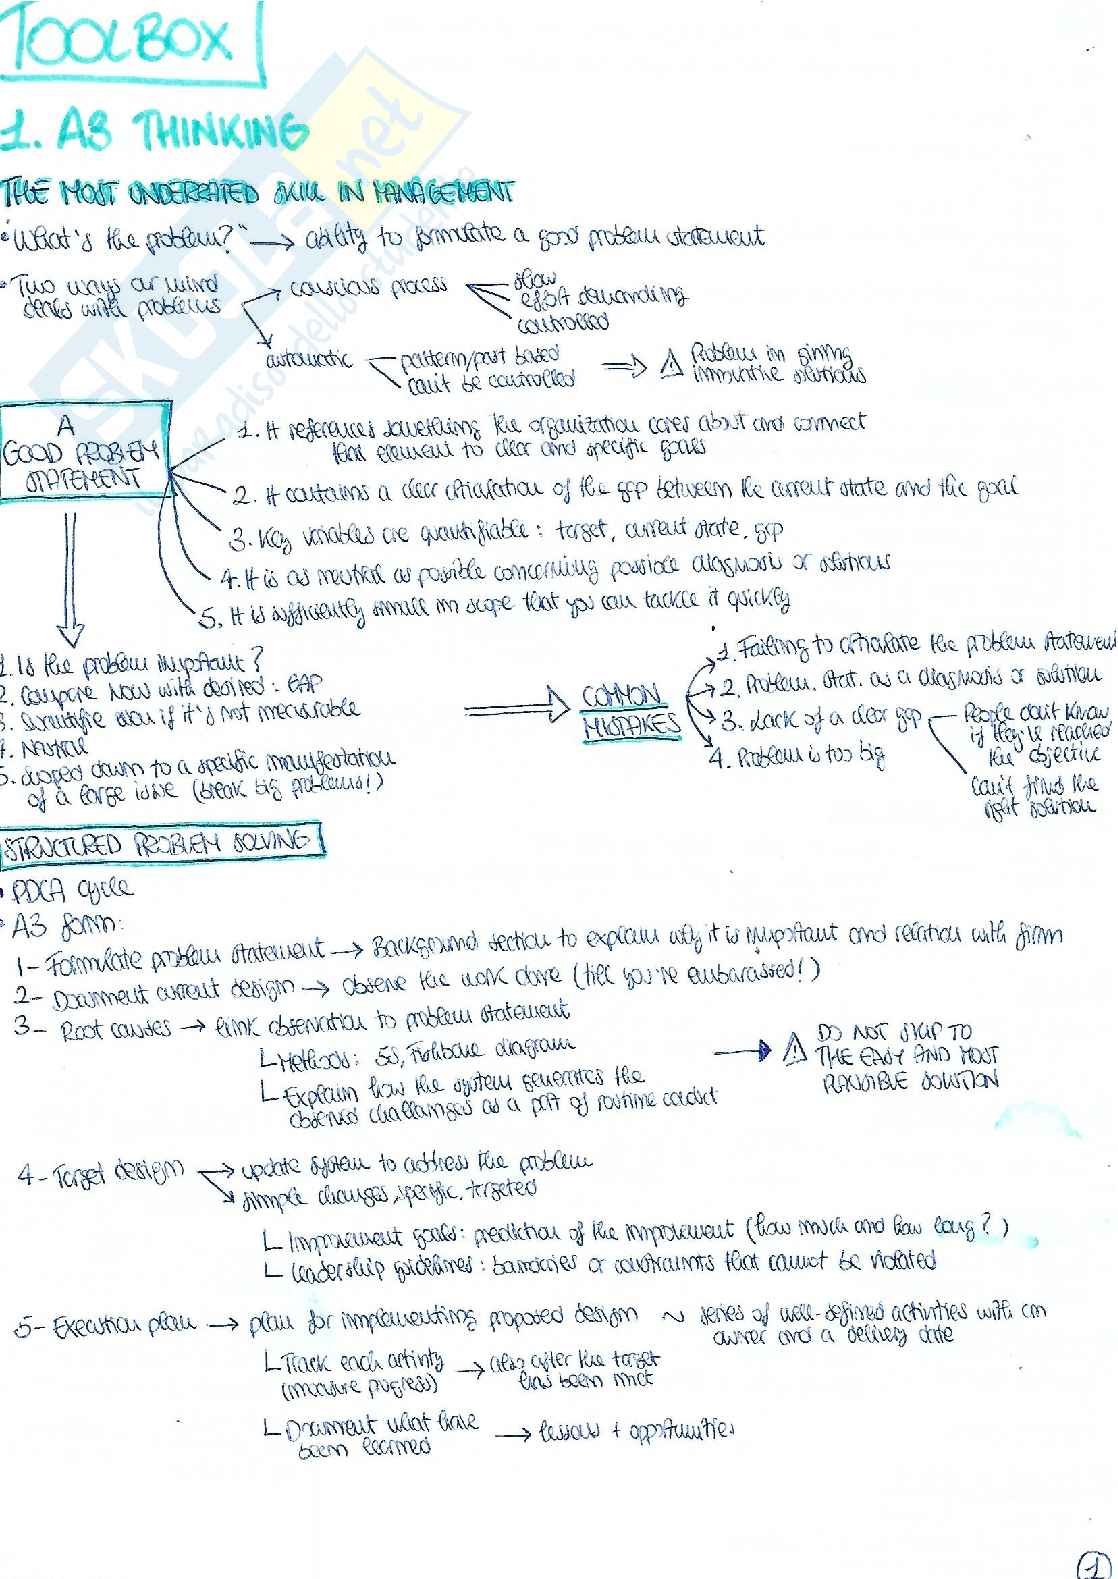 TOOLBOX
1. A3 THINKING
THE MOST UNDERRATED SKILL IN MANAGEMENT
• "What's the problem?" → ability to formulate a good problem statement
• Two ways our mind
deals with problems
→ conscious process
slow
effort demanding
controlled
automatic
pattern/past based
can't be controlled
⇒ ⚠ Problem in gining
innovative solutions
A
GOOD PROBLEM
STATEMENT
1. It references something the organization cares about and connect
that element to clear and specific goals
2. It contains a clear articulation of the gap between the current state and the goal
3. Key variables are quantifiable: target, current state, gap
4. It is as neutral as possible concerning possible diagnosis or solutions
5. It is sufficiently small in scope that you can tackle it quickly
1. Is the problem important?
2. Compare now with desired: GAP
3. Quantifie even if it's not measurable
4. Neutral
5. Scoped down to a specific manifestation
of a large issue (break big problems!)
⇒ COMMON
MISTAKES
1. Failing to articulate the problem statement
2. Problem. stat. as a diagnosis or solution
3. Lack of a clear gap
People don't know
if they've reached
the objective
Can't find the
right solution
4. Problem is too big
STRUCTURED PROBLEM SOLVING
• PDCA cycle
• A3 form:
1- Formulate problem statement → Background section to explain why it is important and relation with firm
2- Document current design → observe the work done (till you're embarassed!)
3- Root causes → link observation to problem statement
Methods: 5S, Fishbone diagram
Explain how the system generates the
observed challanges as a part of routine conduct
→ ⚠ DO NOT SKIP TO
THE EASY AND MOST
PLAUSIBLE SOLUTION
4- Target design → update system to address the problem
simple changes, specific, targeted
Improvement goals: prediction of the improvement (how much and how long?)
Leadership guidelines: boundaries or constraints that cannot be violated
5- Execution plan → plan for implementing proposed design ~ series of well-defined activities with an
owner and a delivery date
Track each activity
(measure progress)
→ also after the target
has been met
Document what have
been learned
→ lessons + opportunities
1
SKUOLA.net